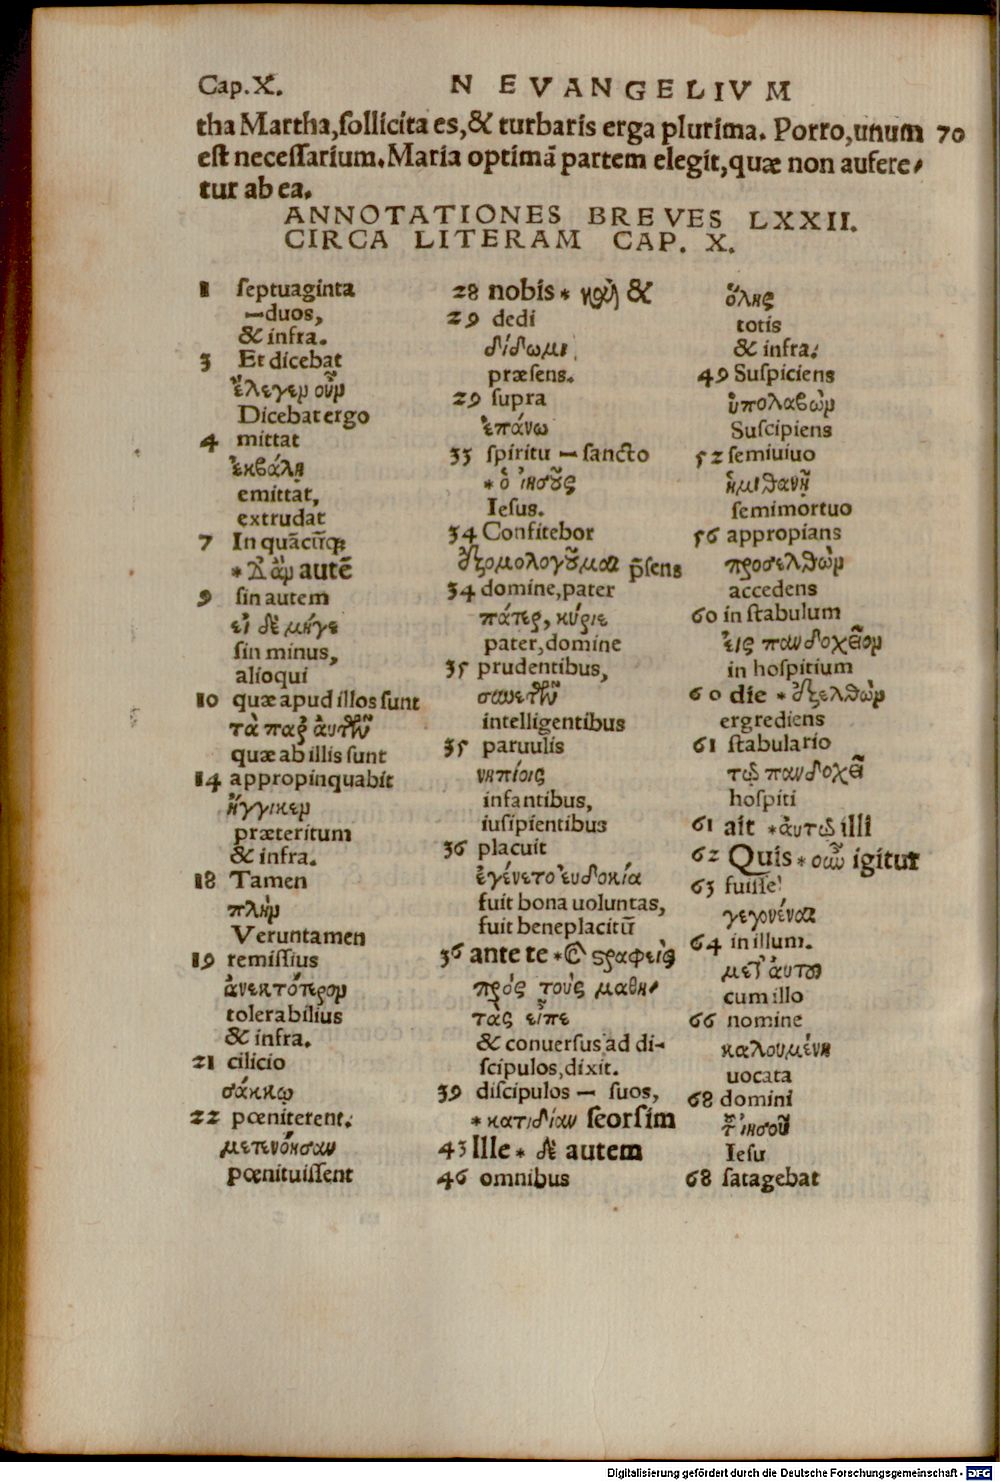 Cap. X. N EVANGELIVM
tha Martha, sollicita es, & turbaris erga plurima. Porro, unum 70
est necessarium. Maria optimā partem elegit, quæ non aufere⸗
tur ab ea.
ANNOTATIONES BREVES LXXII.
CIRCA LITERAM CAP. X.
1 septuaginta
—duos,
& infra.
3 Et dicebat
ἔλεγεν οὖν
Dicebat ergo
4 mittat
ἐκβάλῃ
emittat,
extrudat
7 In quācūq;
* δ' ἂν autē
9 sin autem
εἰ δὲ μήγε
sin minus,
alioqui
10 quæ apud illos sunt
τὰ παρ' ἀυτῶν
quæ ab illis sunt
14 appropinquabit
ἤγγικεν
præteritum
& infra.
18 Tamen
πλὴν
Veruntamen
19 remissius
ἀνεκτότερον
tolerabilius
& infra.
21 cilicio
σάκκῳ
22 pœniterent.
μετενόησαν
pœnituissent
28 nobis * καὶ &
29 dedi
δίδωμι
præsens.
29 supra
ἐπάνω
33 spiritu — sancto
* ὁ ἰησοῦς
Iesus.
34 Confitebor
ἐξομολογοῦμαι p̄sens
34 domine, pater
πάτερ, κύριε
pater, domine
35 prudentibus,
συνετῶν
intelligentibus
35 paruulis
νηπίοις
infantibus,
iusipientibus
36 placuit
ἐγένετο ἐυδοκία
fuit bona uoluntas,
fuit beneplacitū
36 ante te * καὶ στραφεὶς
πρός τοὺς μαθη⸗
τὰς εἶπε
& conuersus ad di-
scipulos, dixit.
39 discipulos — suos,
* κατιδίαν seorsim
43 Ille * δὲ autem
46 omnibus
ὅλης
totis
& infra.
49 Suspiciens
ὑπολαβὼν
Suscipiens
52 semiuiuo
ἡμιθανῆ
semimortuo
56 appropians
προσελθὼν
accedens
60 in stabulum
ἐις πανδοχεῖον
in hospitium
60 die * ἐξελθὼν
ergrediens
61 stabulario
τῷ πανδοχεῖ
hospiti
61 ait * ἀυτῷ illi
62 Quis * οὖν igitur
63 fuisse
γεγονέναι
64 in illum.
μετ' ἀυτοῦ
cum illo
66 nomine
καλουμένη
uocata
68 domini
τ̃ ἰησοῦ
Iesu
68 satagebat
Digitalisierung gefördert durch die Deutsche Forschungsgemeinschaft - DFG